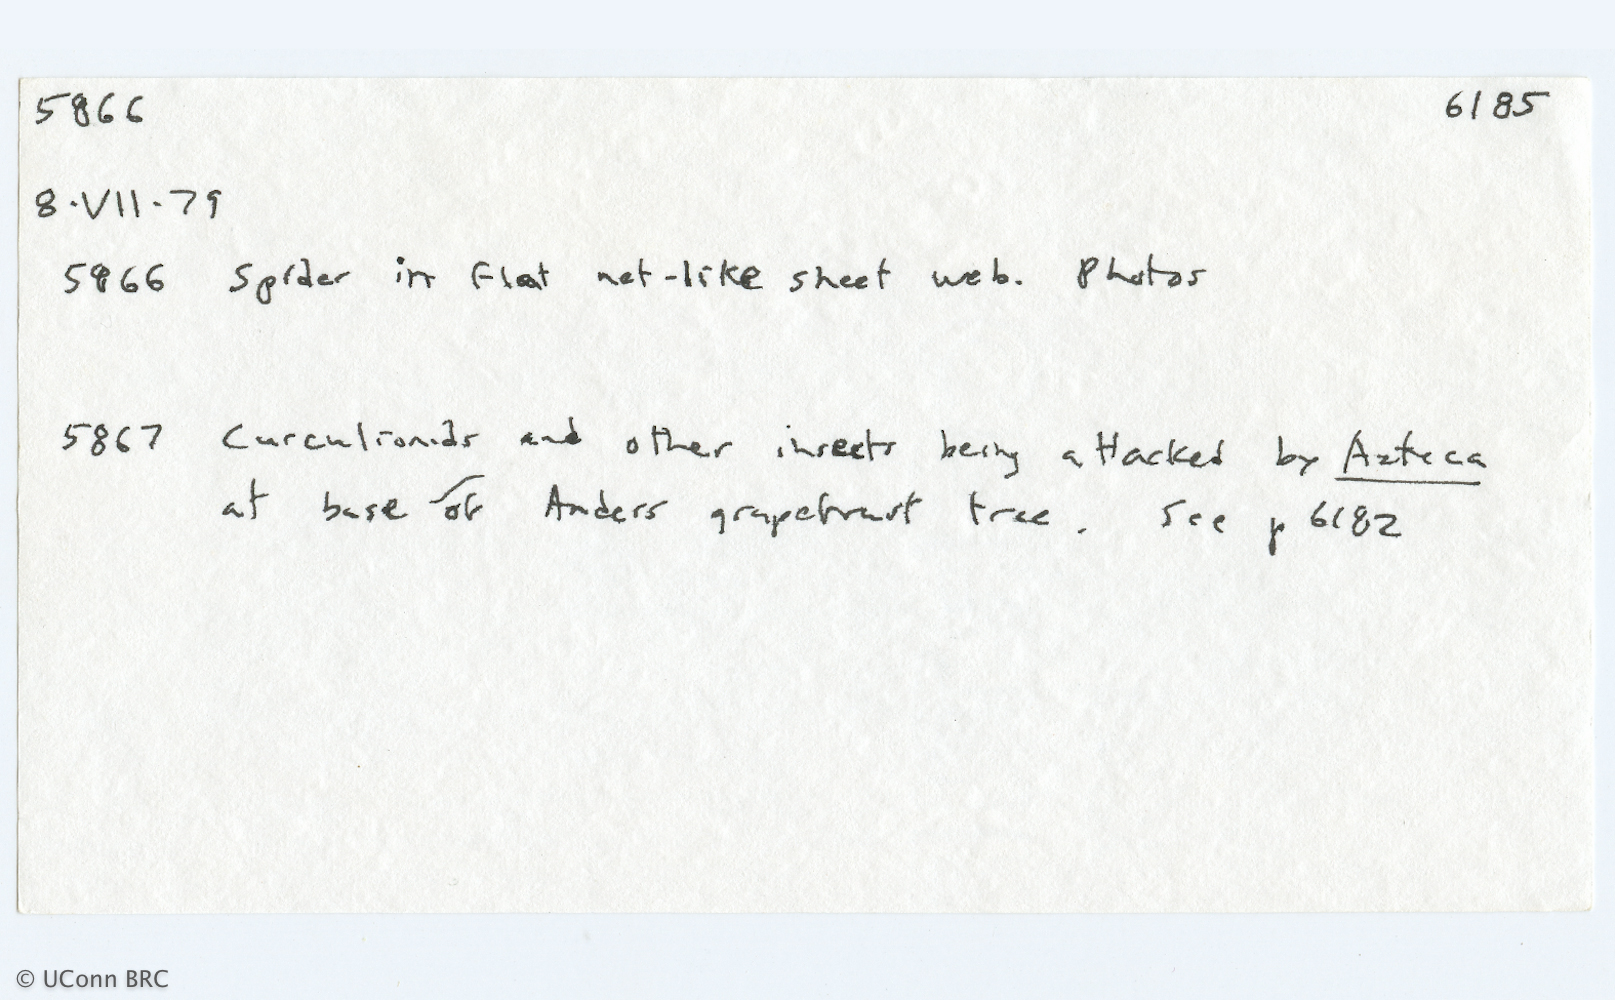 5866 6185
8·VII·79
5866 Spider in flat net-like sheet web. Photos
5867 Curculionids and other insects being attacked by Azteca
at base of Anders grapefruit tree. See p 6182
© UConn BRC